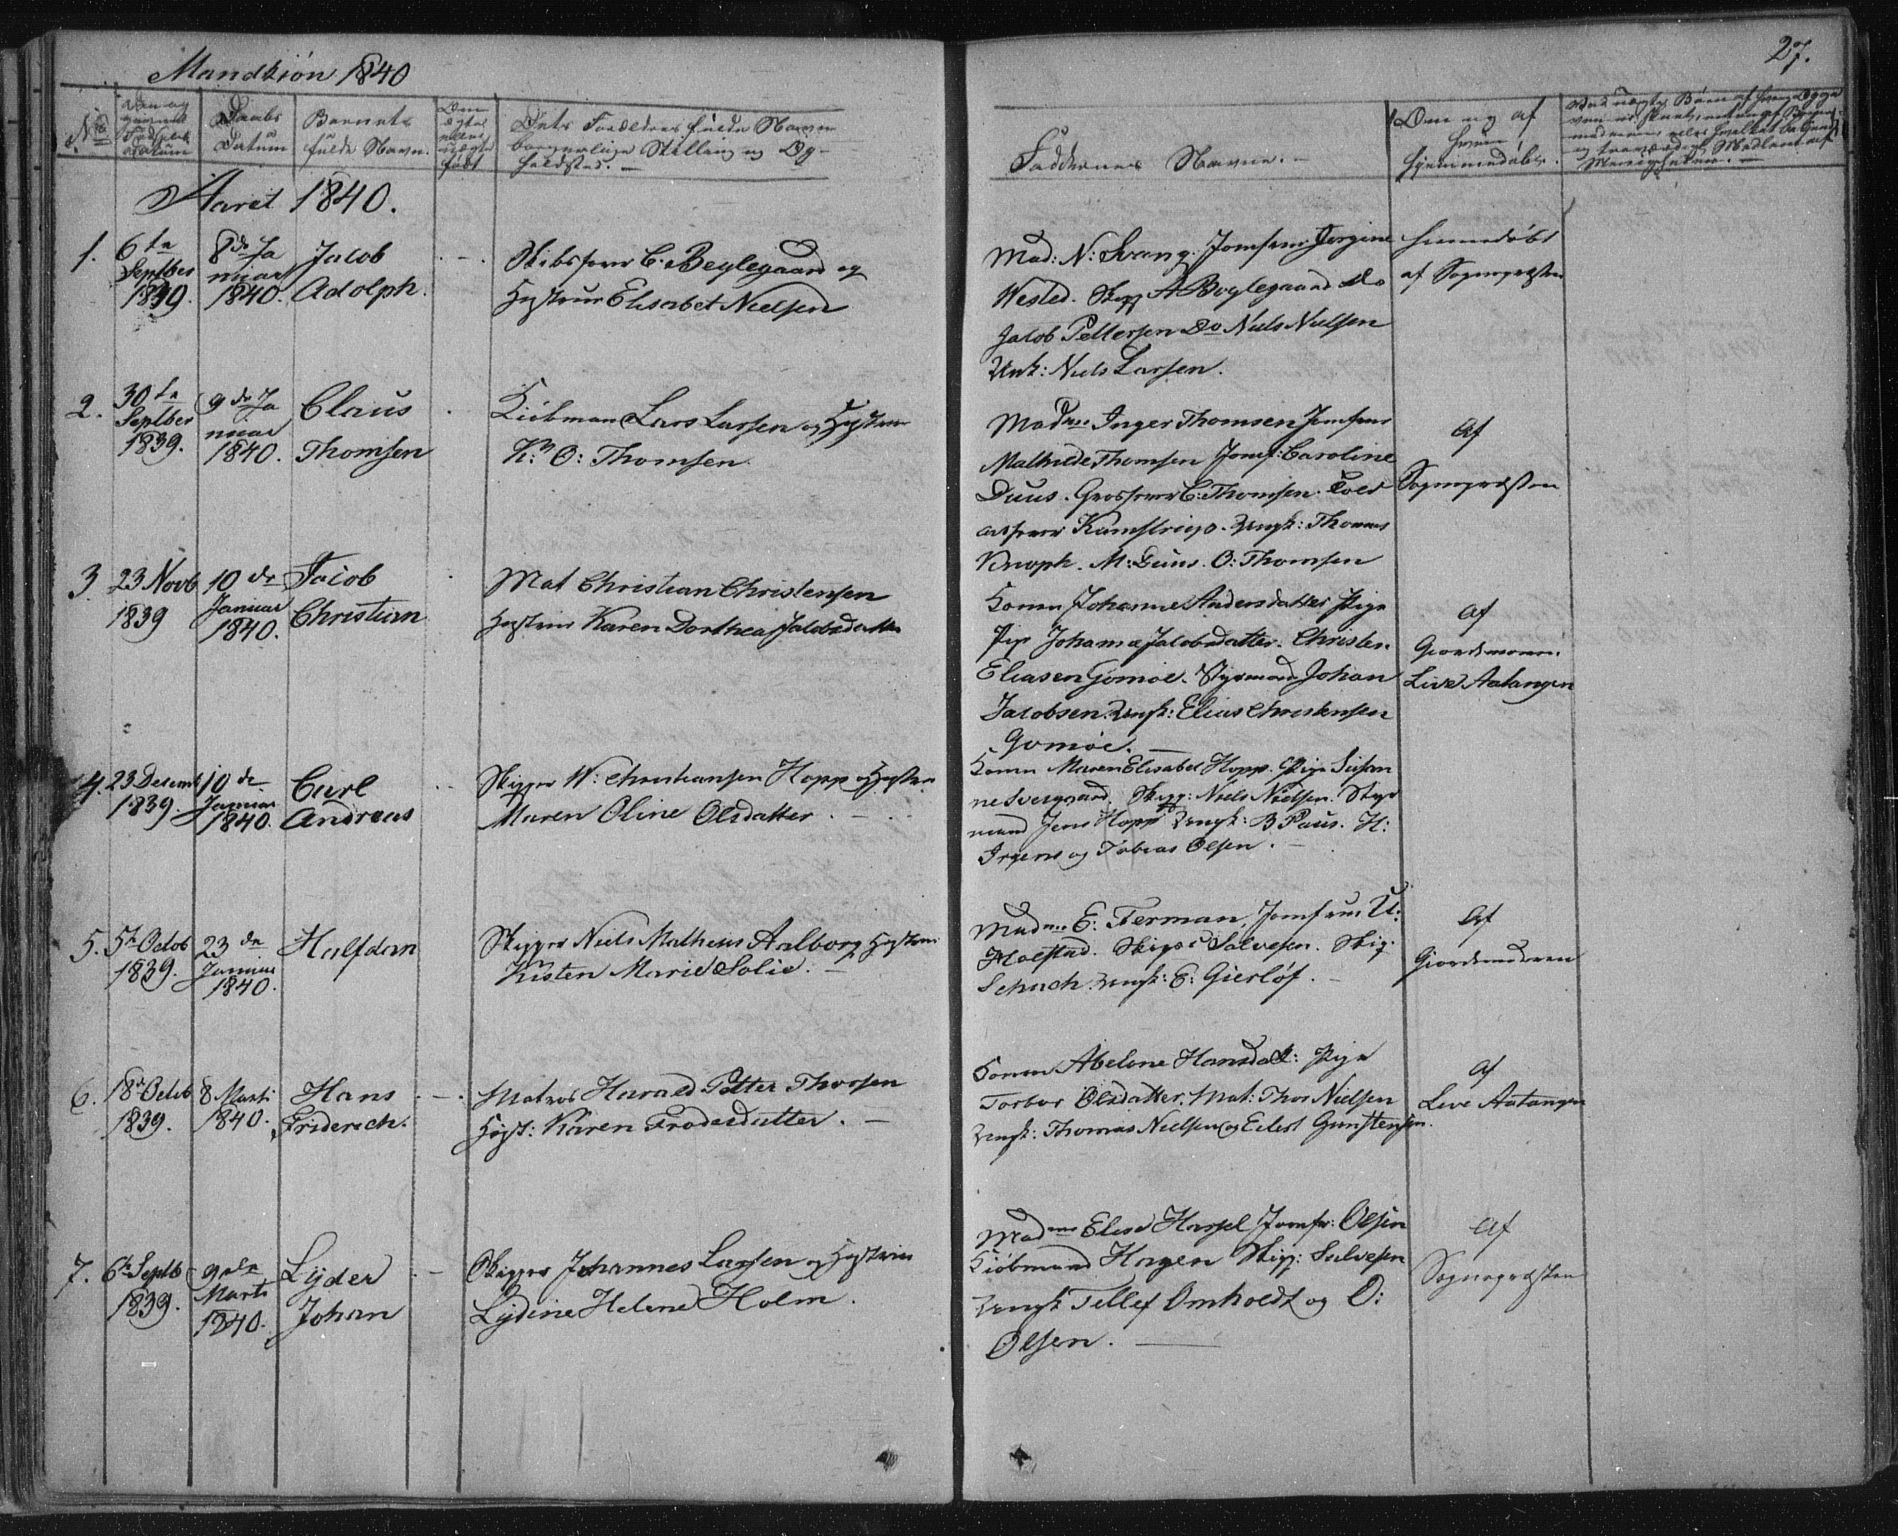 27.
Mandkiøn 1840
No
Aar og
Fødsels
Datum
Daabs
Datum
Barnets
fulde Navn.
Om
ægte
eller
uægte
født
Dets Forældres fulde Navn
borgerlige Stilling og Op-
holdsted. —
Faddernes Navne. —
Om og af
hvem
hjemmedøbt.
Aaret 1840.
1.
6te
Septber
1839.
8de Ja
nuar
1840.
Jacob
Adolph.
Skibsfører C. Beylegaard og
Hustrue Elisabet Nielsen
Mad: N: Svang. Jomfrue Jorgine
Wested. Skipp A Boylegaard Do
Jacob Pettersen Do Niels Nielsen
Unk: Niels Larsen.
hiemedøbt
af Sognepræsten
2.
30te
Septber
1839.
9de Ja
nuar
1840.
Claus
Thomsen
Kiøbman Lars Larsen og Hustrue
K: O: Thomsen
Madme Inger Thomsen Jomfrue
Mathilde Thomsen Jomf: Caroline
Duus. Grosserer C: Thomsen. Told
Kamstrup. Ungk: Thomas
M: Duus O: Thomsen
Af
Sognepræsten
3.
23 Novb
1839
10 de
Januar
1840.
Jacob
Christian
Mat Christian Christensen
Hustrue Karen Dorthea Jacobsdatter
Konen Johanne Andersdatter Pige
Pige Johanne Jacobsdatter. Christen
Eliasen Gomoe. Styrmand Johan
Jacobsen. Ungk: Elias Christensen
Gomoe. —
af
Giordemoren
Live Aatangen
4.
23 Desemb
1839.
10 de
Januar
1840.
Carl
Andreas
Skipper W: Christiansen Hopp og Hustrue
Maren Oline Olsdatter. —
Konen Maren Elisabet Hopp. Pige Susan
ne Svergaard. Skipp: Niels Nielsen. Styr
mand Jens Hopp Ungk: B Paus. H:
Irgens og Tobias Olsen. —
5.
5te Octob
1839.
23 de
Januar
1840.
Halfdan
Skipper Niels Matheus Aalborg Hustrue
Kisten Marie Solie. —
Madme E: Ferman, Jomfrue U:
Moestad. Skipper Salvesen. Skip.
Schach. Ungk: E: Gierløf. —
Af
Giordemoderen
6.
18de Octob
1839.
8 Marti
1840.
Hans
Friderich.
Matros Harald Petter Thorsen
Hust: Karen Frodesdatter. —
Konen Abelone Hansdat: Pige
Torbor Olsdatter. Mat: Thor Nielsen
Ungk: Thomas Nielsen og Edert Gunstensen.
af
Live Aatangen
7.
6te Septb
1839.
9de
Marti
1840.
Lyder
Johan
Skipper Johannes Larsen og Hustrue
Lydine Helene Holm.
Madme Elise Hassel Jomfr: Olsen
Kiøbmand Hagen Skip: Salvesen
Ungk Tellef Omholdt og O:
Olsen. —
Af
Sognepræsten